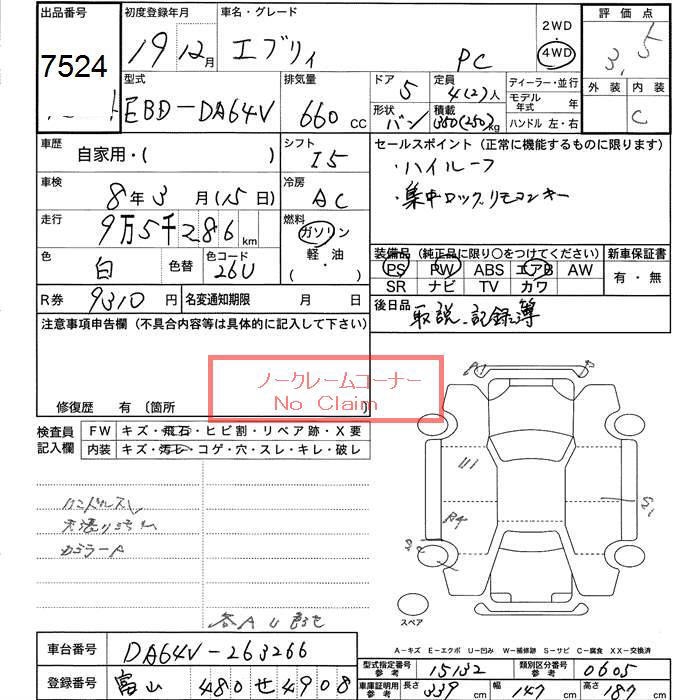 出品番号
7524
初度登録年月
19 12月
車名・グレード
エブリィ PC
2WD
4WD
評価点
3.5
外装 内装
C
型式
EBD-DA64V
排気量
660 cc
ドア
5
定員
4(2)人
形状
バン
積載
350(250)kg
ディーラー・並行
モデル年式 年
ハンドル 左・右
車歴
自家用・( )
シフト
I5
車検
8年3月(15日)
冷房
AC
走行
9万5千286km
燃料
ガソリン
軽・油
( )
色
白
色替
色コード
26U
R券 9310円
名変通知期限 月 日
セールスポイント(正常に機能するものに限ります)
・ハイルーフ
・集中ロック、リモコンキー
装備品(純正品に限り○をつけてください)
PS PW ABS エアB AW
SR ナビ TV カワ
新車保証書
有・無
後日品
取説、記録簿
注意事項申告欄(不具合内容等は具体的に記入して下さい)
ノークレームコーナー
No Claim
修復歴 有 〔箇所
検査員記入欄
FW キズ・飛石・ヒビ割・リペア跡・X要
内装 キズ・汚レ・コゲ・穴・スレ・キレ・破レ
ハンドルスレ
各AU
U1
スペア
A-キズ E-エクボ U-凹み W-補修跡 S-サビ C-腐食 XX-交換済
車台番号 DA64V-263266
登録番号 富山 480 せ 4908
型式指定番号 参考 15132
類別区分番号 参考 0605
車庫証明用 参考 長さ 339cm 幅 147cm 高さ 187cm